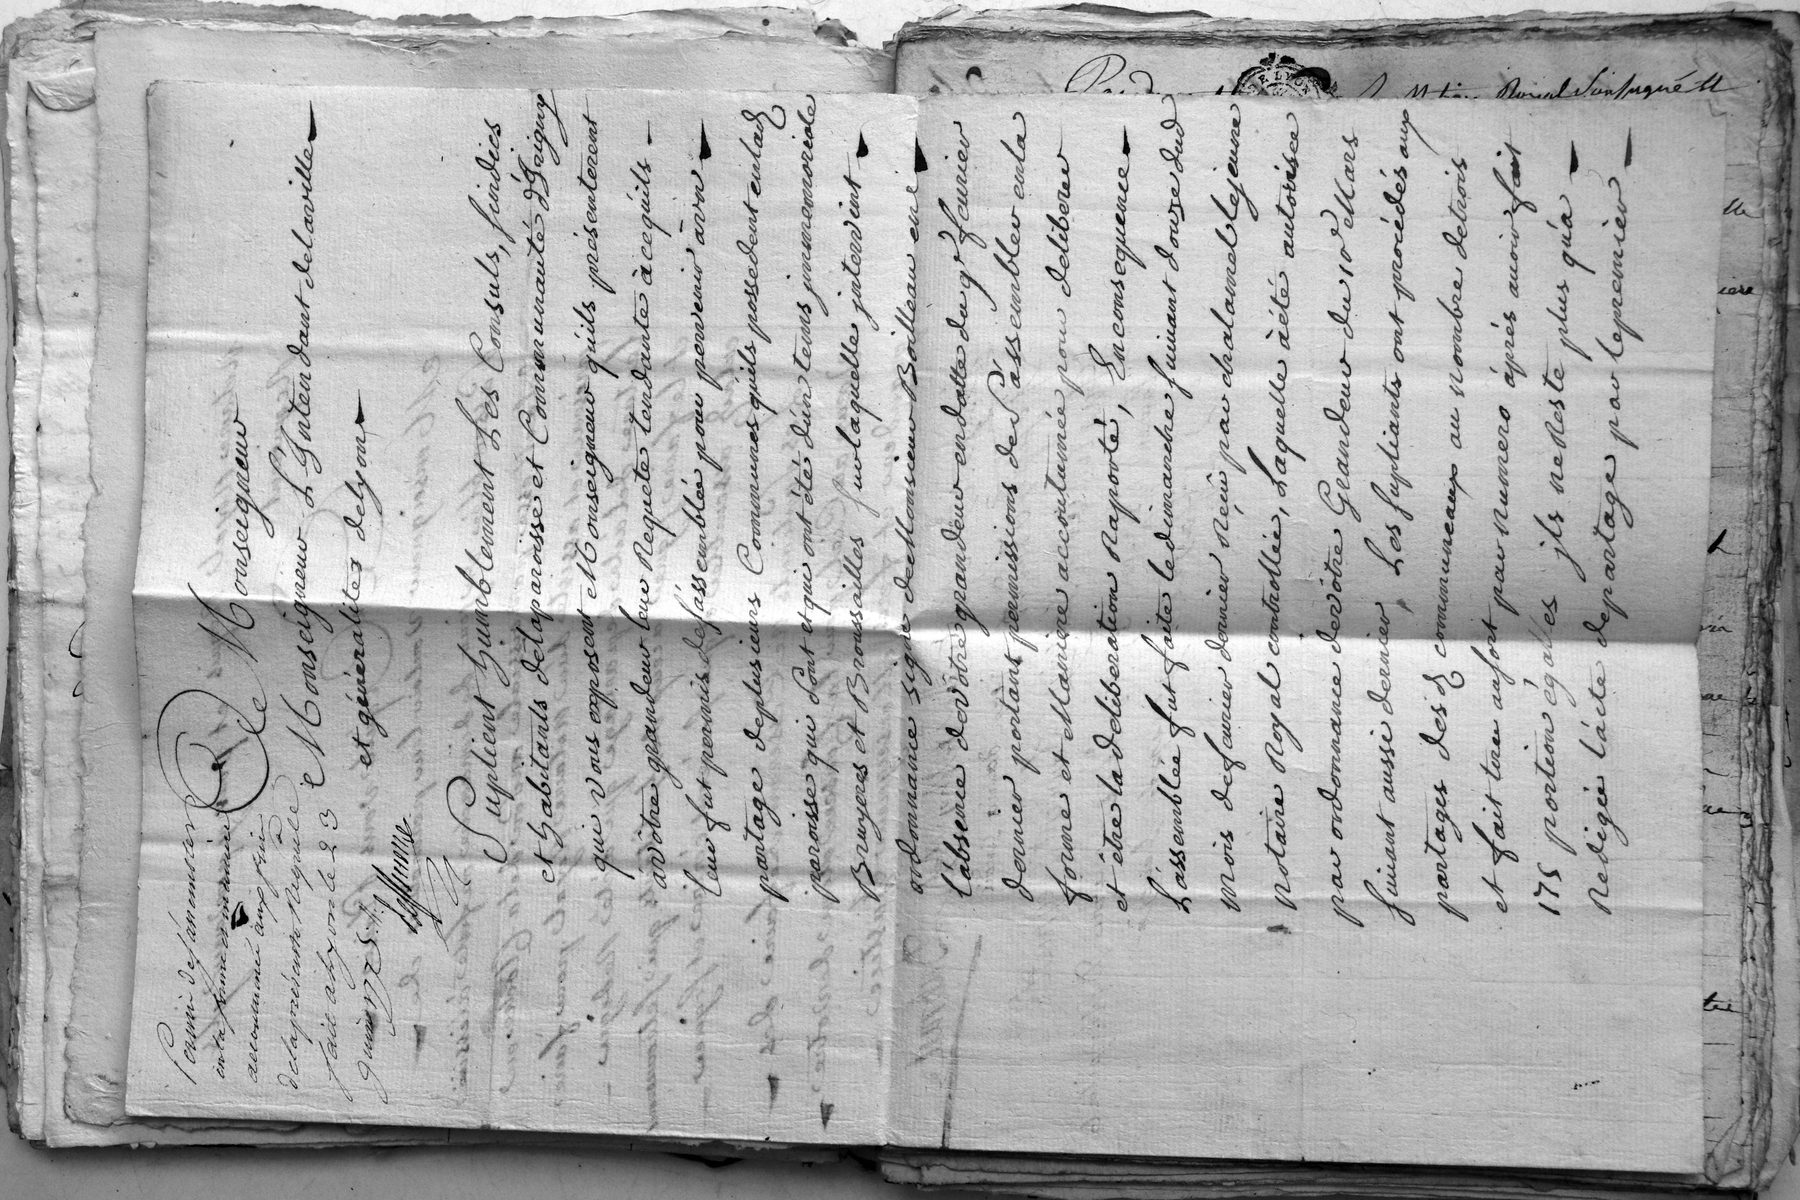 Permis de s'assembler
en la forme et maniere
accoutumée aux frais
de la présente Requête
fait à Lyon le 23
Monseigneur
Monseigneur L'Intendant de la ville
et généralitée de lyon
Suplient humblement Les Consuls, sindics
et habitants de la paroisse et Communauté d'Grigny
qui vous exposent Monseigneur quils présenterent
a vôtre grandeur leur Requete tendante à ce quils
leur fut permis de s'assemblée pour parvenir au
partage de plusieurs Communes quils possedent en lad
paroisse qui sont et qui ont été d'un tems jmmemoriale
Bruyeres et Broussailles sur laquelle jntervint
ordonnance signée de Monsieur Boilleau en
l'absence de Votre grandeur en datte du 9r feurier
dernier portant permissions de s'assembler en la
forme et Maniere accoutumée pour deliberer
et être la deliberation Raporté, En consequence
L'assemblée fut faite le dimanche suivant douze dud
mois de feurier dernier Reçue par chalamel lejeune
notaire Royal controllée, Laquelle a été autorisée
par ordonnance de vôtre Grandeur du 10r Mars
suivant aussi dernier, Les supliants ont procédés aux
partages desd communeaux au nombre de trois
et fait tirer au sort par numero après avoir fait
175 portion égalles jls ne Reste plus qu'a
Redigée l'acte de partage par le premier